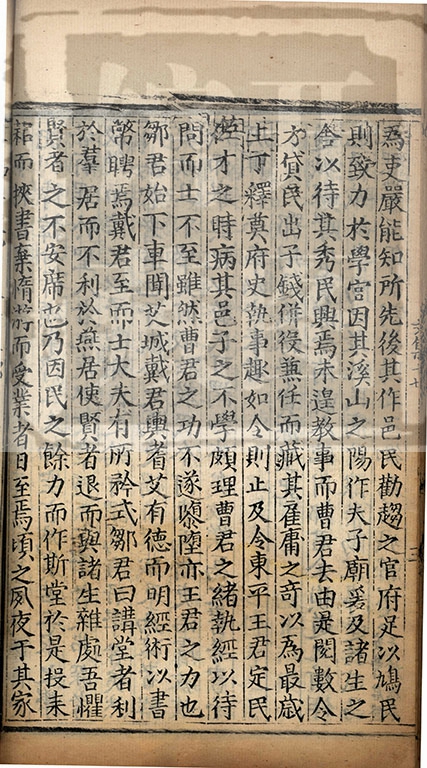 為吏嚴能知所先後其作邑民勸趨之官府足以鳩民
則致力於學官因其溪山之陽作夫子廟爰及諸生之
舍以待其秀民興焉未遑教事而曹君去由是閱數令
方貸民出子錢併役兼任而藏其雇庸之奇以為最歲
上丁釋奠府史執事趣如令則止及今東平王君定民
在才之時病其邑子之不學頗理曹君之緒執經以待
問而士不至雖然曹君之功不遂隳墮亦王君之力也
鄒君始下車聞芝城戴君興者艾有德而明經術以書
幣聘焉戴君至而士大夫有所矜式鄒君曰講堂者利
於羣居而不利於燕居使賢者退而與諸生雜處吾懼
賢者之不安席也乃因民之餘力而作斯堂於是投耒
耜而挾書棄隋游而受業者日至焉頃之夙夜于其家